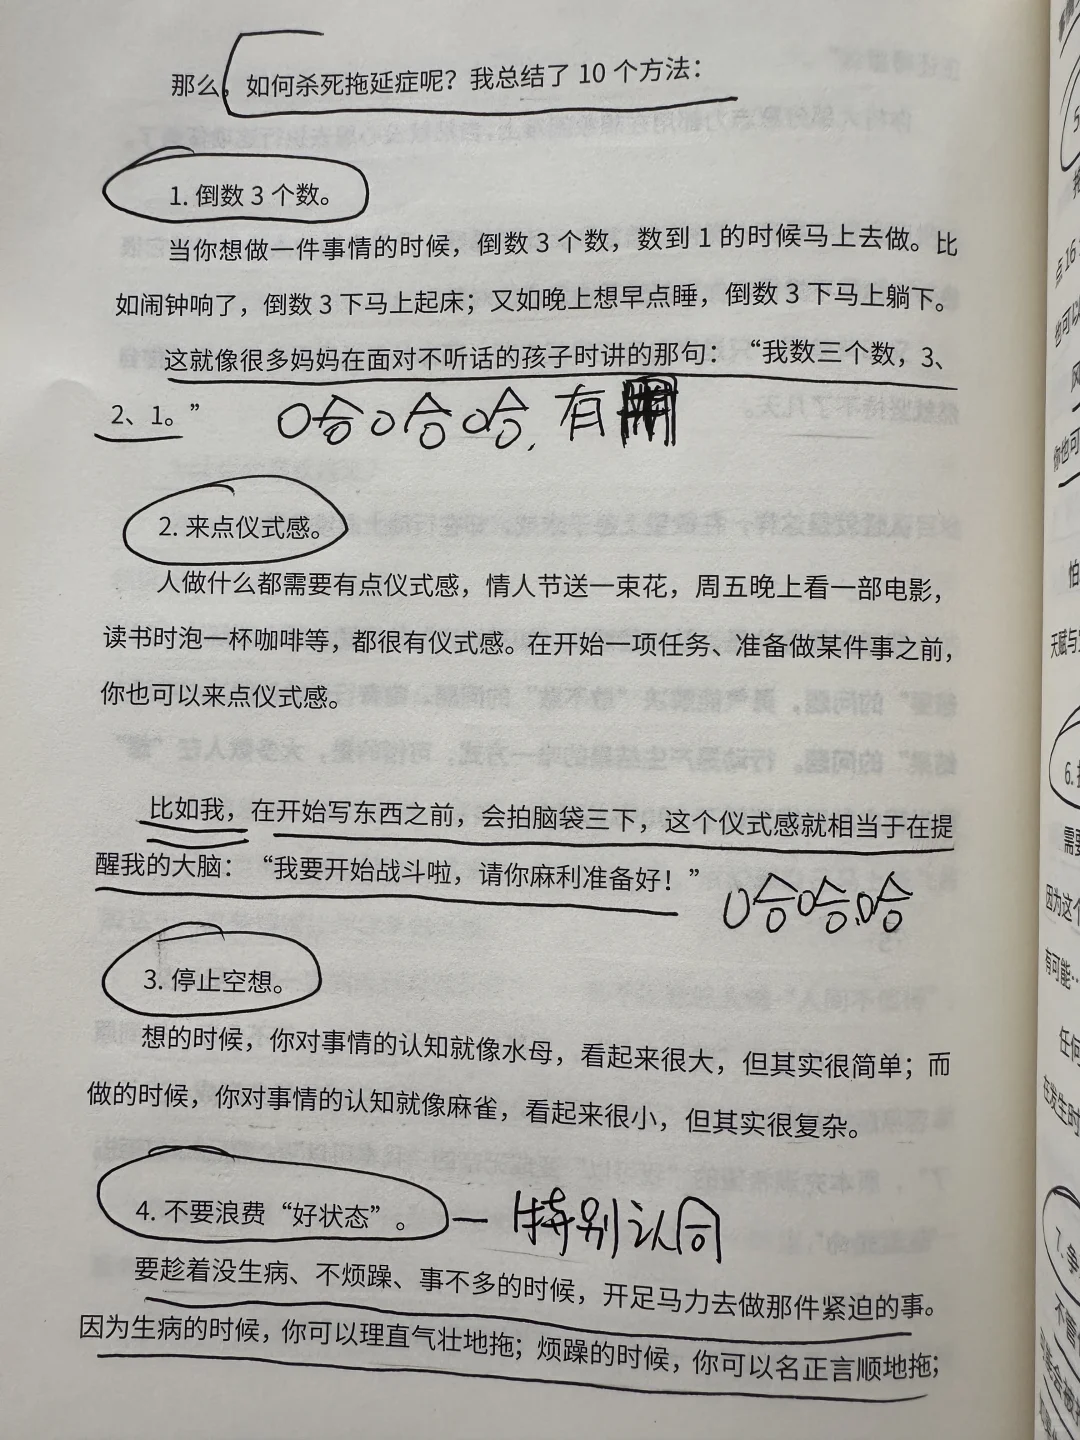 那么，如何杀死拖延症呢？我总结了 10 个方法：
1. 倒数 3 个数。
当你想做一件事情的时候，倒数 3 个数，数到 1 的时候马上去做。比
如闹钟响了，倒数 3 下马上起床；又如晚上想早点睡，倒数 3 下马上躺下。
这就像很多妈妈在面对不听话的孩子时讲的那句：“我数三个数，3、
2、1。”
哈哈哈，有
2. 来点仪式感。
人做什么都需要有点仪式感，情人节送一束花，周五晚上看一部电影，
读书时泡一杯咖啡等，都很有仪式感。在开始一项任务、准备做某件事之前，
你也可以来点仪式感。
比如我，在开始写东西之前，会拍脑袋三下，这个仪式感就相当于在提
醒我的大脑：“我要开始战斗啦，请你麻利准备好！”
哈哈哈
3. 停止空想。
想的时候，你对事情的认知就像水母，看起来很大，但其实很简单；而
做的时候，你对事情的认知就像麻雀，看起来很小，但其实很复杂。
4. 不要浪费“好状态”。 — 特别认同
要趁着没生病、不烦躁、事不多的时候，开足马力去做那件紧迫的事。
因为生病的时候，你可以理直气壮地拖；烦躁的时候，你可以名正言顺地拖；
点 16
也可以
你也可
怕
天赋与
6.
需要
因为这个
有可能…
任何
在发生时
7. 争
不管